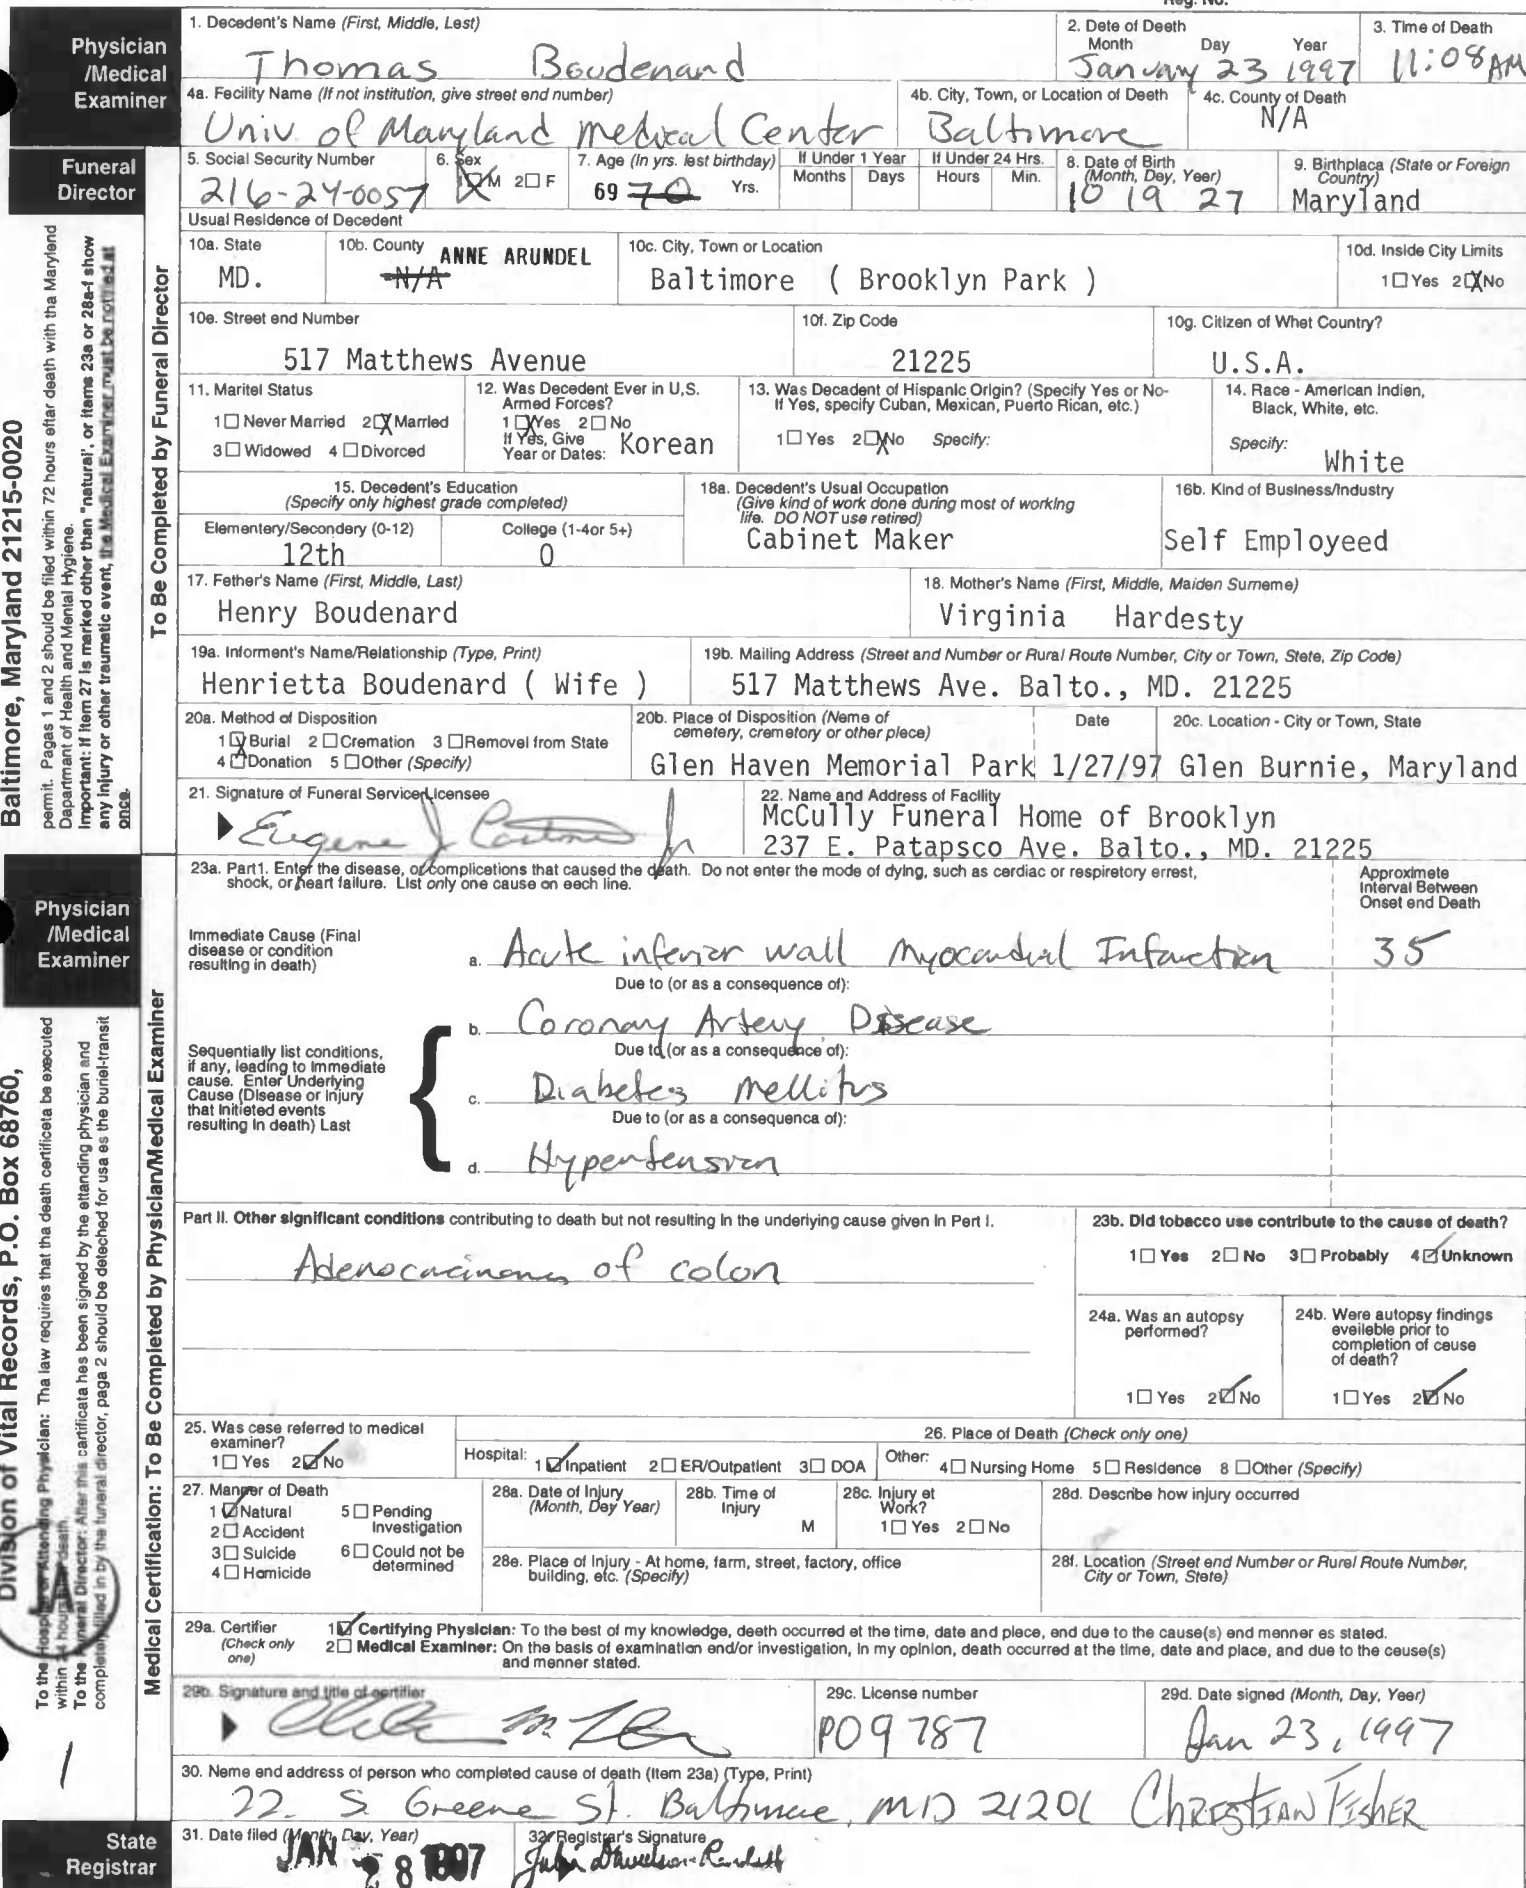 Reg. No.
Physician
/Medical
Examiner
1. Decedent's Name (First, Middle, Last)
Thomas Boudenand
2. Date of Death
Month Day Year
January 23 1997
3. Time of Death
11:08 AM
4a. Facility Name (If not institution, give street end number)
Univ of Maryland Medical Center
4b. City, Town, or Location of Deeth
Baltimore
4c. County of Death
N/A
Funeral
Director
5. Social Security Number
216-24-0057
6. Sex
1☒M 2☐F
7. Age (In yrs. last birthday)
69 70 Yrs.
If Under 1 Year
Months Days
If Under 24 Hrs.
Hours Min.
8. Date of Birth
(Month, Dey, Year)
10 19 27
9. Birthplaca (State or Foreign
Country)
Maryland
Usual Residence of Decedent
10a. State
MD.
10b. County
ANNE ARUNDEL
N/A
10c. City, Town or Location
Baltimore ( Brooklyn Park )
10d. Inside City Limits
1☐Yes 2☒No
10e. Street end Number
517 Matthews Avenue
10f. Zip Code
21225
10g. Citizen of Whet Country?
U.S.A.
11. Maritel Status
1☐Never Married 2☒Married
3☐Widowed 4☐Divorced
12. Was Decedent Ever in U,S.
Armed Forces?
1☒Yes 2☐No
If Yes, Give
Year or Dates: Korean
13. Was Decadent of Hispanic Origin? (Specify Yes or No-
If Yes, specify Cuban, Mexican, Puerto Rican, etc.)
1☐Yes 2☒No Specify:
14. Race - American Indien,
Black, White, etc.
Specify:
White
15. Decedent's Education
(Specify only highest grade completed)
Elementery/Secondery (0-12)
12th
College (1-4or 5+)
0
18a. Decedent's Usual Occupation
(Give kind of work done during most of working
life. DO NOT use retired)
Cabinet Maker
16b. Kind of Business/Industry
Self Employeed
17. Father's Name (First, Middle, Last)
Henry Boudenard
18. Mother's Name (First, Middle, Maiden Surneme)
Virginia Hardesty
19a. Informent's Name/Relationship (Type, Print)
Henrietta Boudenard ( Wife )
19b. Mailing Address (Street and Number or Rural Route Number, City or Town, Stete, Zip Code)
517 Matthews Ave. Balto., MD. 21225
20a. Method of Disposition
1☒Burial 2☐Cremation 3☐Removel from State
4☐Donation 5☐Other (Specify)
20b. Place of Disposition (Neme of
cemetery, cremetory or other plece)
Glen Haven Memorial Park
Date
1/27/97
20c. Location - City or Town, State
Glen Burnie, Maryland
21. Signature of Funeral Service Licensee
Eugene J
22. Name and Address of Facility
McCully Funeral Home of Brooklyn
237 E. Patapsco Ave. Balto., MD. 21225
To Be Completed by Funeral Director
Baltimore, Maryland 21215-0020
permit. Pagas 1 and 2 should be filed within 72 hours eftar death with tha Maryland
Dapartmant of Haalth and Mental Hygiene.
Important: If item 27 is markad othar than "natural", or items 23a or 28a-f show
any injury or other traumatic event, the Medical Examiner must be notified at
once.
Physician
/Medical
Examiner
23a. Part1. Enter the disease, or complications that caused the death. Do not enter the mode of dying, such as cardiac or respiretory errest,
shock, or heart failure. List only one cause on eech line.
Approximete
Interval Between
Onset end Death
Immediate Cause (Final
disease or condition
resulting in death)
a. Acute inferior wall Myocardial Infarction 35
Due to (or as a consequence of):
b. Coronary Artery Disease
Due to (or as a consequence of):
Sequentially list conditions,
if any, leading to immediate
cause. Enter Underlying
Cause (Disease or injury
that initieted events
resulting in death) Last
c. Diabetes mellitus
Due to (or as a consequenca of):
d. Hypertension
Part II. Other significant conditions contributing to death but not resulting in the underlying cause given in Part I.
Adenocarcinoma of colon
23b. Did tobacco use contribute to the cause of death?
1☐Yes 2☐No 3☐Probably 4☑Unknown
24a. Was an autopsy
performed?
1☐Yes 2☑No
24b. Were autopsy findings
eveileble prior to
completion of ceuse
of death?
1☐Yes 2☑No
25. Was cese referred to medicel
examiner?
1☐Yes 2☑No
26. Place of Death (Check only one)
Hospital: 1☑Inpatient 2☐ER/Outpatlent 3☐DOA
Other: 4☐Nursing Home 5☐Residence 8☐Other (Specify)
27. Manner of Death
1☑Natural 5☐Pending
Investigation
2☐Accident
3☐Suicide 6☐Could not be
determined
4☐Homicide
28a. Date of Injury
(Month, Dey Year)
28b. Time of
Injury
M
28c. Injury et
Work?
1☐Yes 2☐No
28d. Describe how injury occurred
28e. Place of Injury - At home, farm, street, factory, office
building, etc. (Specify)
28f. Location (Street end Number or Rurel Route Number,
City or Town, Stete)
29a. Certifier
(Check only
one)
1☑Certifying Physician: To the best of my knowledge, deeth occurred et the time, date and plece, end due to the cause(s) end menner es stated.
2☐Medical Examiner: On the basis of examination end/or investigation, in my opinion, death occurred at the time, date and place, and due to the ceuse(s)
and menner stated.
29b. Signature and title of certifier
29c. License number
P09787
29d. Date signed (Month, Day, Yeer)
Jan 23, 1997
30. Neme end address of person who completed cause of death (Item 23a) (Type, Print)
22. S. Greene St. Baltimore, MD 21201 Christian Fisher
Medical Certification: To Be Completed by Physician/Medical Examiner
Division of Vital Records, P.O. Box 68760,
To the Hospital or Attending Physician: Tha law requires that tha death certificeta be executed
within 24 hours after death.
To the Funeral Director: After this cartificata hes been signed by the ettanding physician and
completely filled in by the funeral director, paga 2 should be deteched for usa es the buriel-transit
1
State
Registrar
31. Date filed (Month, Day, Year)
JAN 28 1997
32. Registrar's Signature